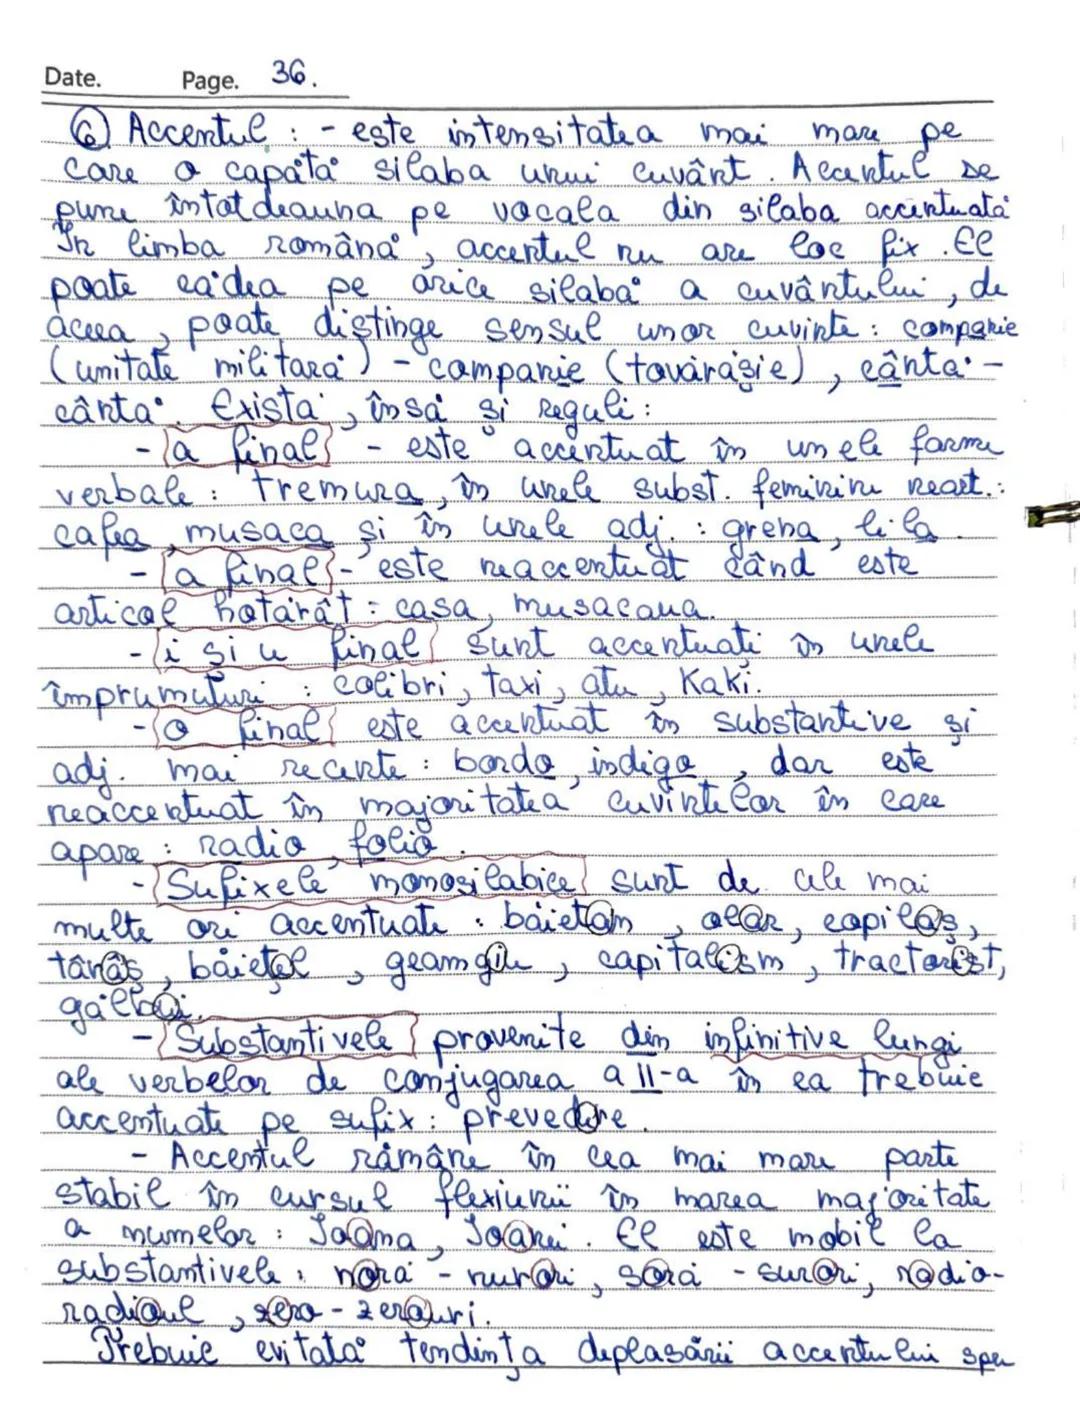 Date. Page. 36.
⑥ Accentul : - este intensitatea mai mare pe
care o capătă silaba unui cuvânt. Accentul se
pune întotdeauna pe vocala din silaba accentuată
În limba română, accentul nu are loc fix. El
poate cădea pe orice silabă a cuvântului, de
aceea, poate distinge sensul unor cuvinte : companie
(unitate militară) - companie (tovărășie), cântă -
cântă. Există, însă și reguli :
- a final - este accentuat în unele forme
verbale : tremura, în unele subst. feminine neart. :
cafea, musaca și în unele adj. : grena, lila.
- a final - este neaccentuat când este
articol hotărât : casa, musacaua.
- i și u final sunt accentuați în unele
împrumuturi : colibri, taxi, atu, Kaki.
- o final este accentuat în substantive și
adj. mai recente : bordo, indigo, dar este
neaccentuat în majoritatea cuvintelor în care
apare : radio, folio.
- Sufixele monosilabice sunt de cele mai
multe ori accentuate : băietan, olar, copilaș,
tânăș, băiețel, geamgiu, capitalism, tractorist,
gălbui.
- Substantivele provenite din infinitive lungi
ale verbelor de conjugarea a II-a în ea trebuie
accentuate pe sufix : prevedere.
- Accentul rămâne în cea mai mare parte
stabil în cursul flexiunii în marea majoritate
a numelor : Ioana, Ioanei. El este mobil la
substantivele : noră - nurori, soră - surori, radio-
radioul, zero - zerouri.
Trebuie evitată tendința deplasării accentului spre